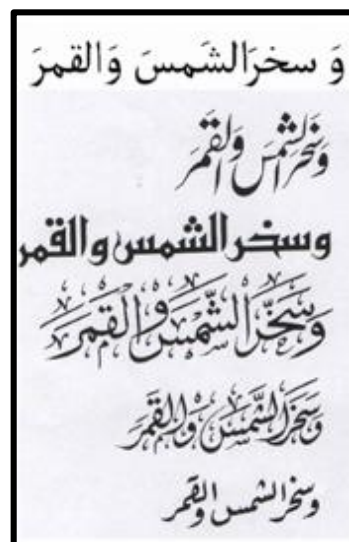 وَ سخرَالشَمسَ وَالقمرَ
وَسَخَّرَ الشَّمْسَ وَالْقَمَرَ
وسخر الشمس والقمر
وَسَخَّرَ الشَّمْسَ وَالْقَمَرَ
وَسَخَّرَ الشَّمْسَ وَالْقَمَرَ
وسخر الشمس والقمر